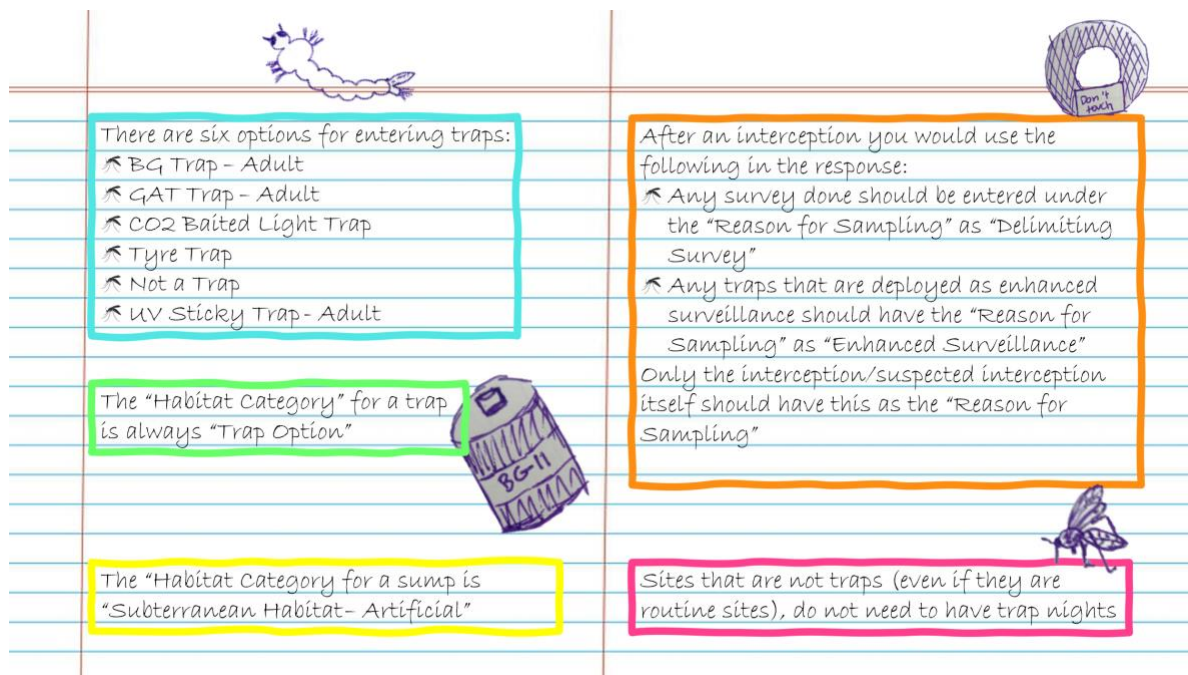 There are six options for entering traps:
BG Trap – Adult
GAT Trap – Adult
CO2 Baited Light Trap
Tyre Trap
Not a Trap
UV Sticky Trap- Adult
The "Habitat Category" for a trap
is always "Trap Option"
BG-11
The "Habitat Category for a sump is
"Subterranean Habitat- Artificial"
Don't
touch
After an interception you would use the
following in the response:
Any survey done should be entered under
the "Reason for Sampling" as "Delimiting
Survey"
Any traps that are deployed as enhanced
surveillance should have the "Reason for
Sampling" as "Enhanced Surveillance"
Only the interception/suspected interception
itself should have this as the "Reason for
Sampling"
Sites that are not traps (even if they are
routine sites), do not need to have trap nights